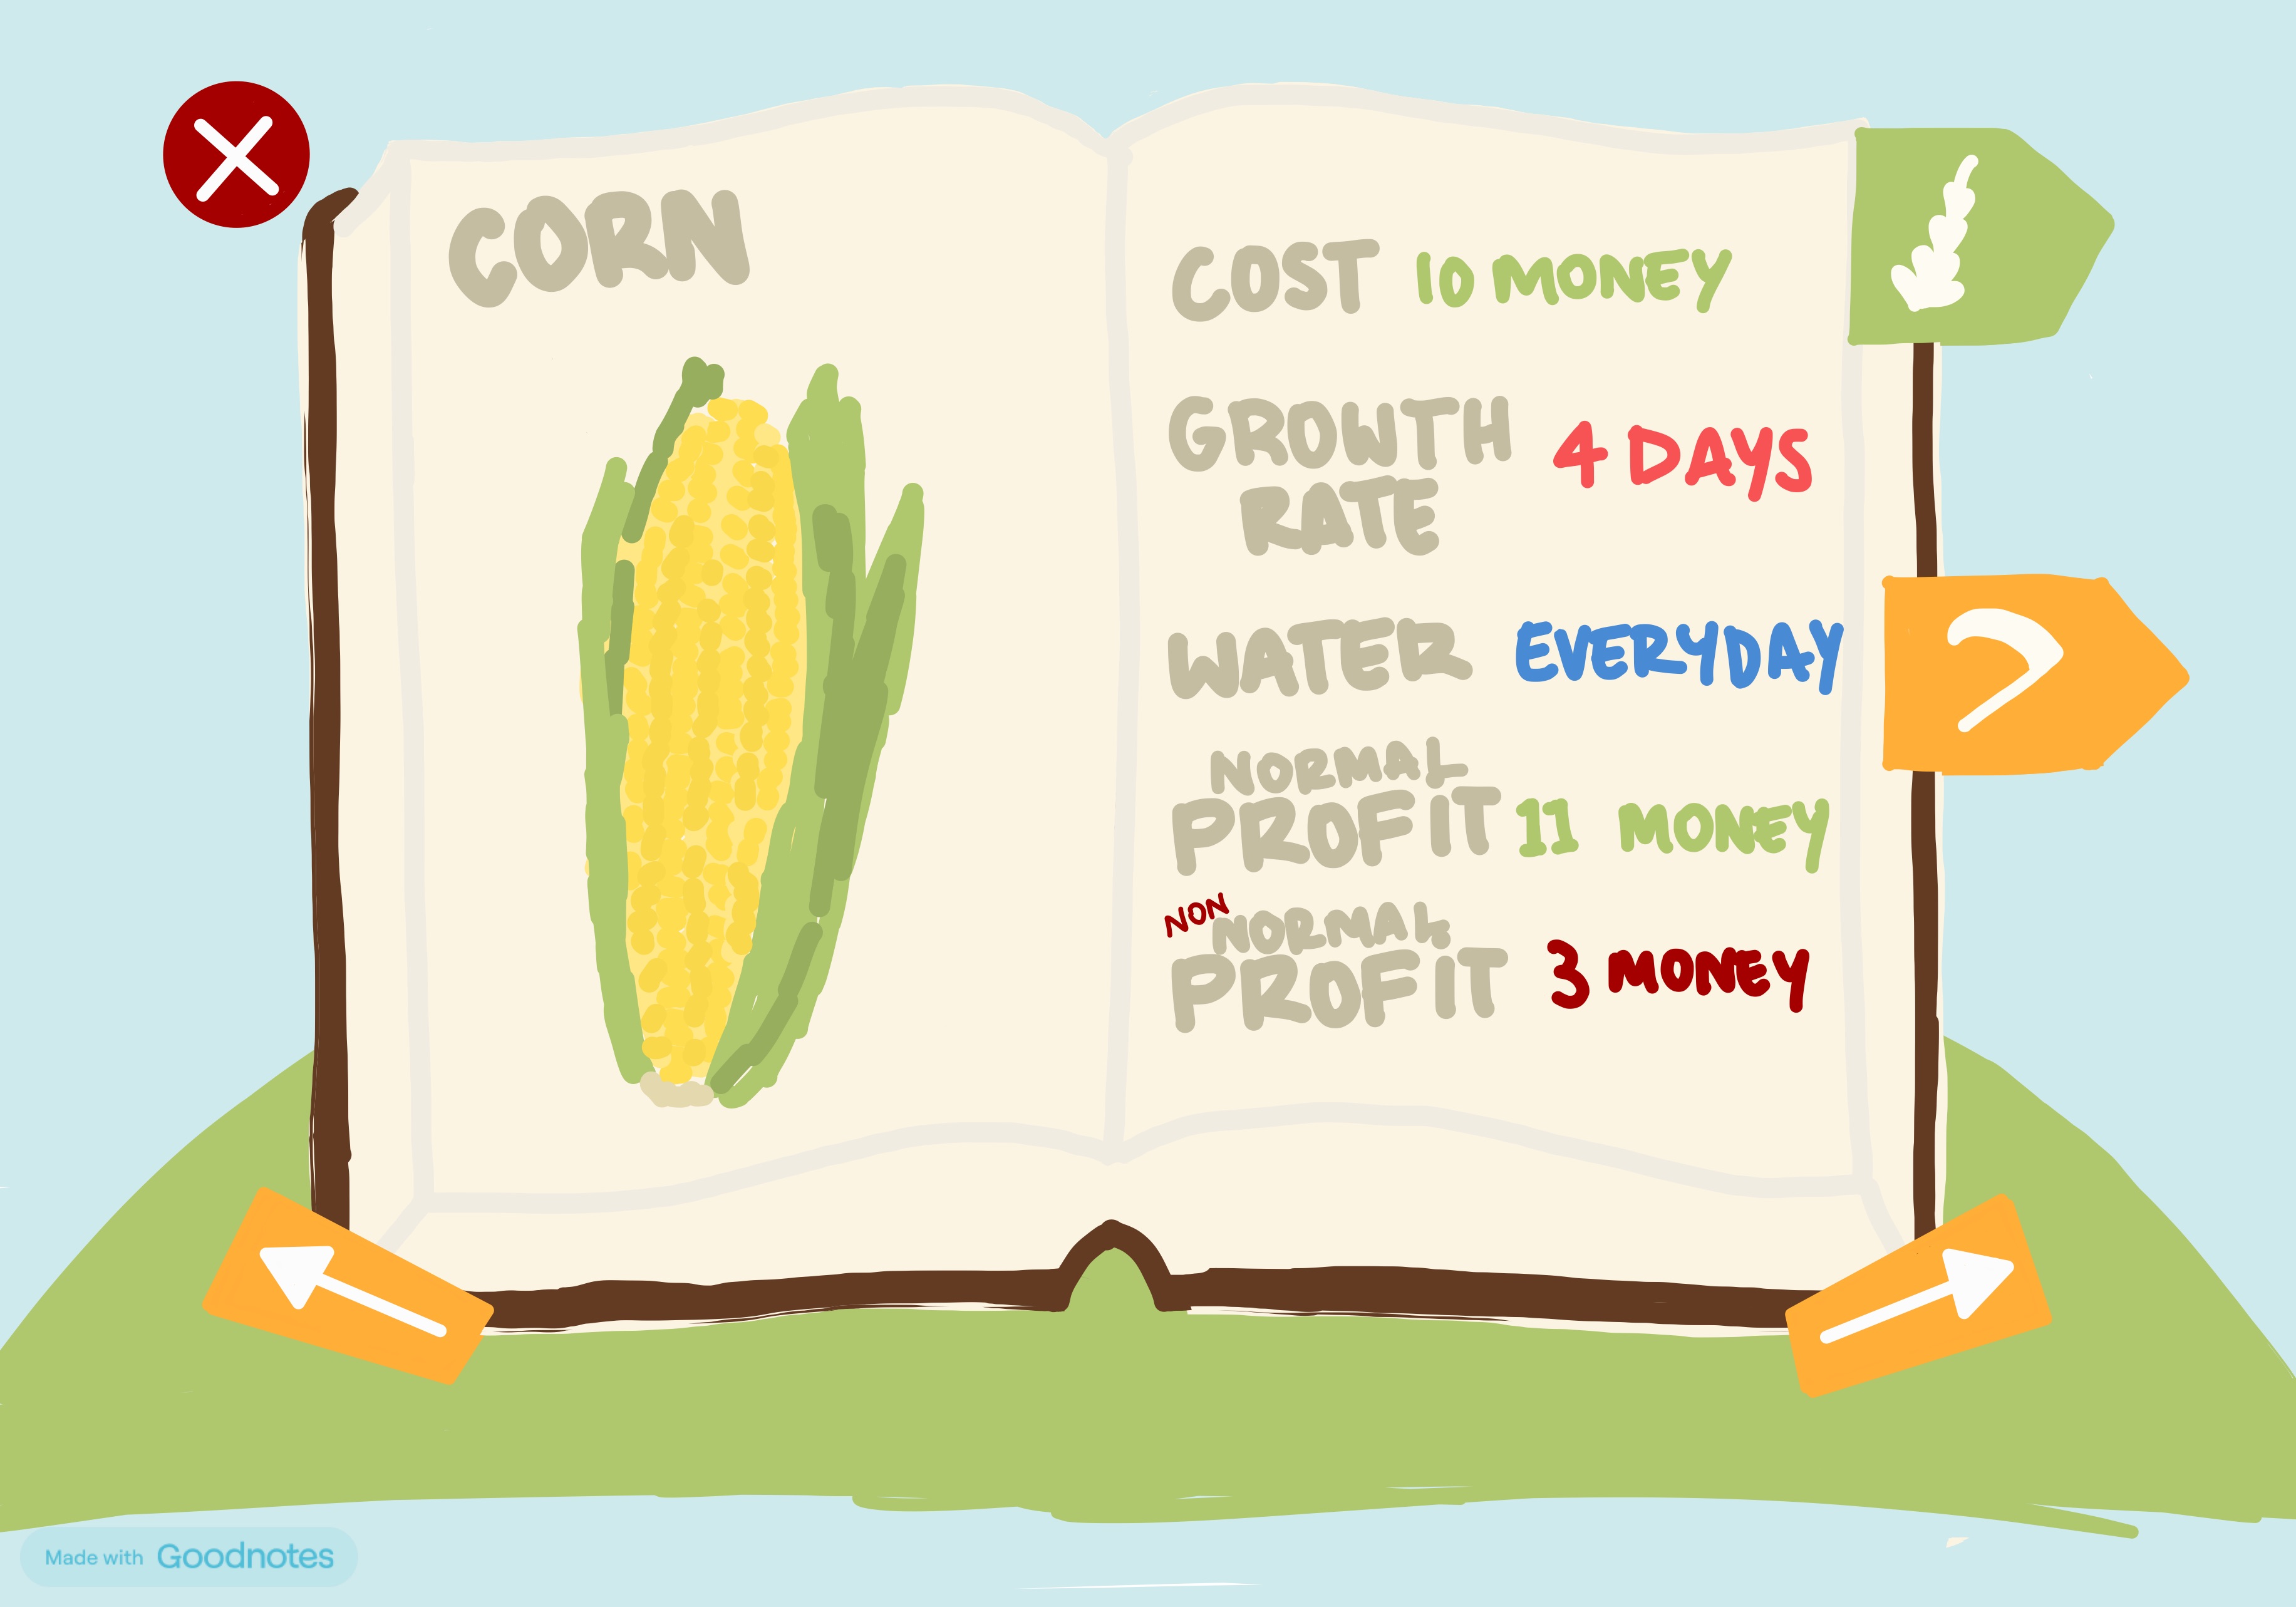 CORN
COST 10 MONEY
GROWTH RATE 4 DAYS
WATER EVERYDAY
NORMAL PROFIT 11 MONEY
NON NORMAL PROFIT 3 MONEY
Made with Goodnotes